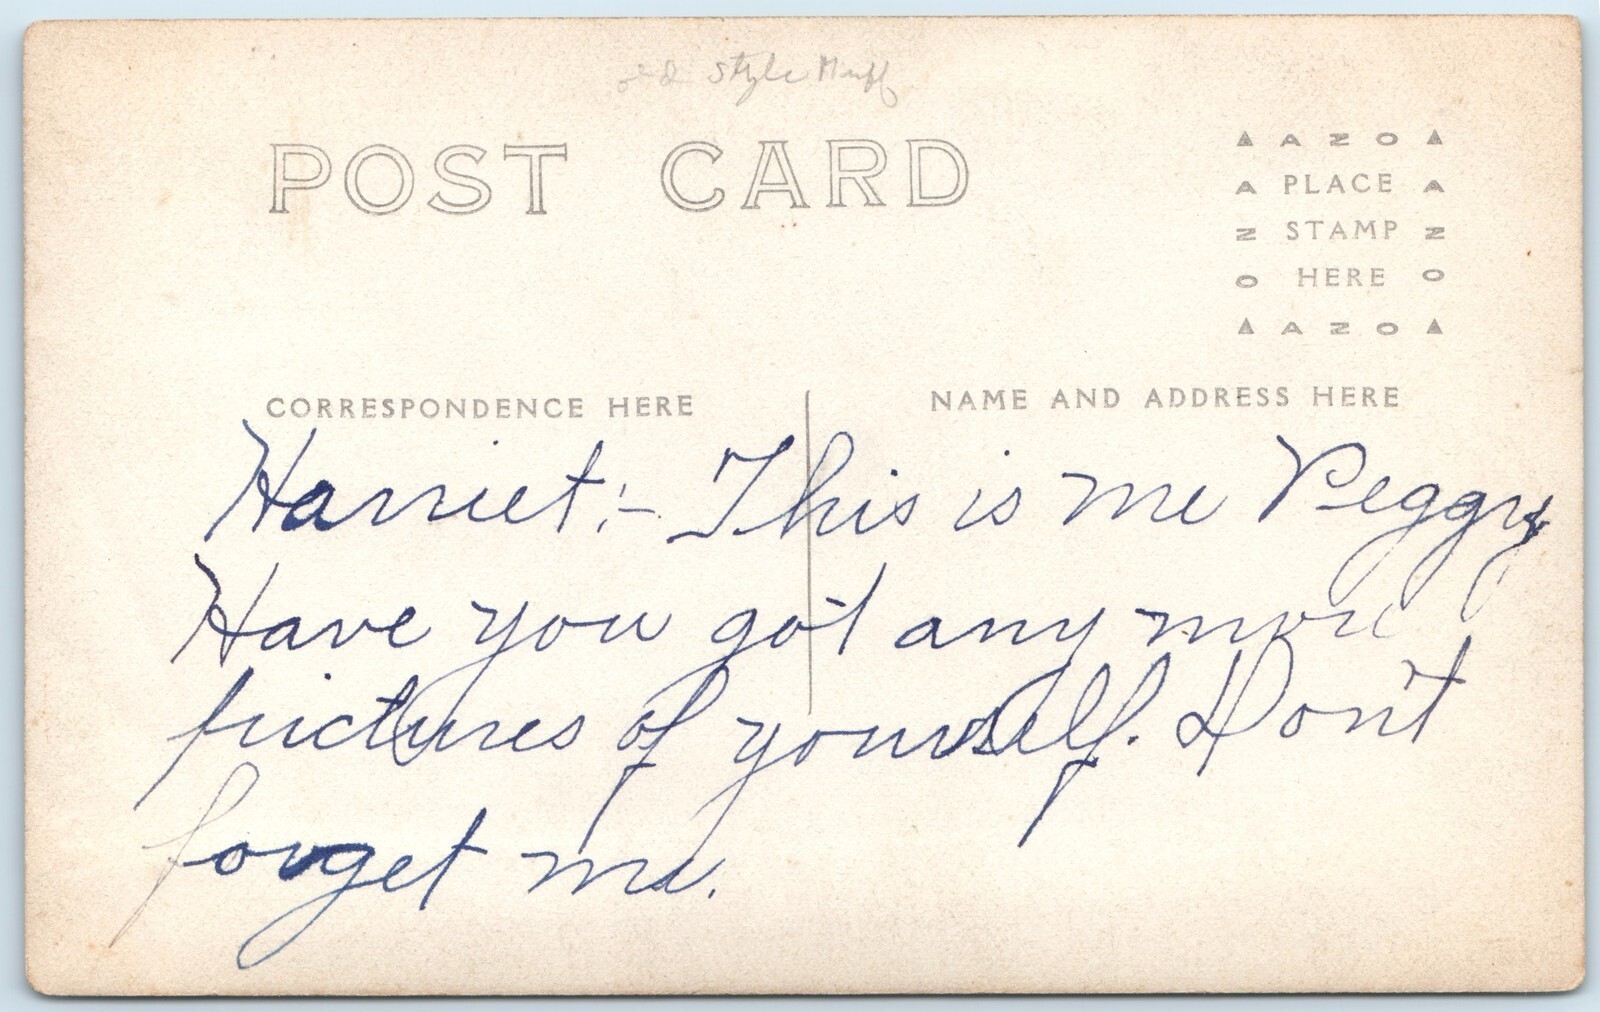 old style Muff
POST CARD
▲ A Z O ▲
A PLACE A
Z STAMP Z
O HERE O
▲ A Z O ▲
CORRESPONDENCE HERE
NAME AND ADDRESS HERE
Harriet:- This is me Peggy
Have you got any more
pictures of yourself. Don't
forget me.